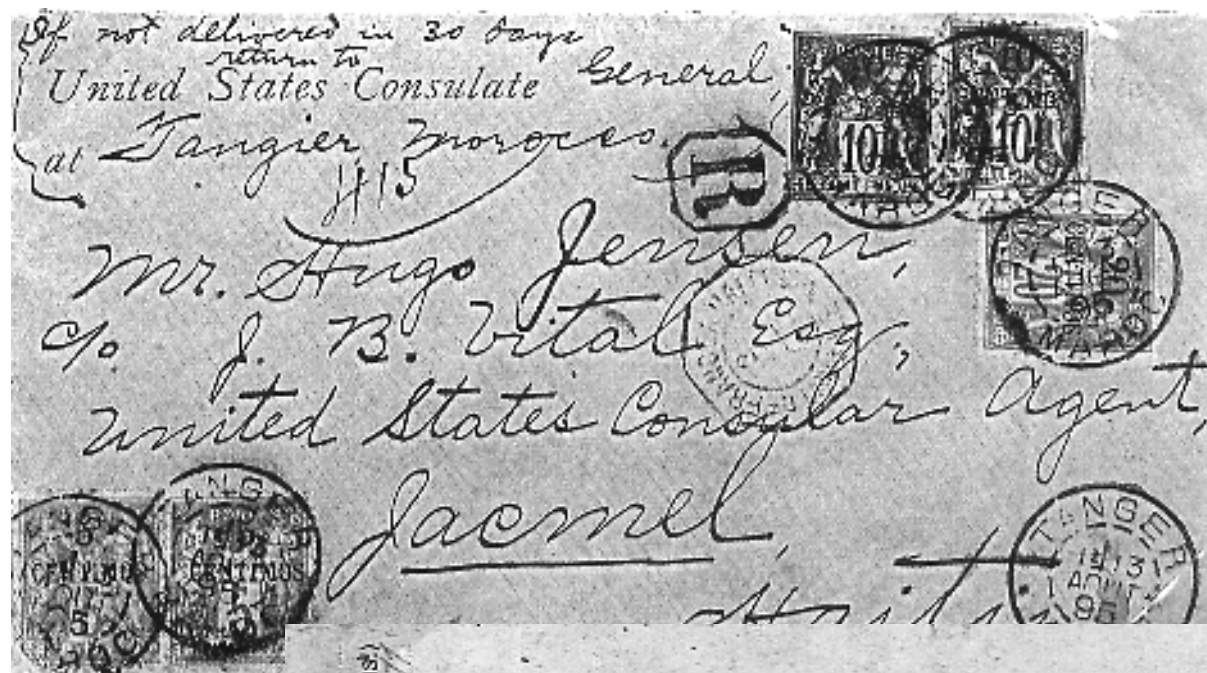 If not delivered in 30 days
return to
United States Consulate General,
at Tangier, Morocco.
415
R
10
10
Mr. Hugo Jensen,
c/o. J. B. Vital Esq.,
United States Consular Agent,
Jacmel,
Haiti
TANGER
MAROC
5
CENTIMOS
CENTIMOS
TANGER
13
AOUT
95